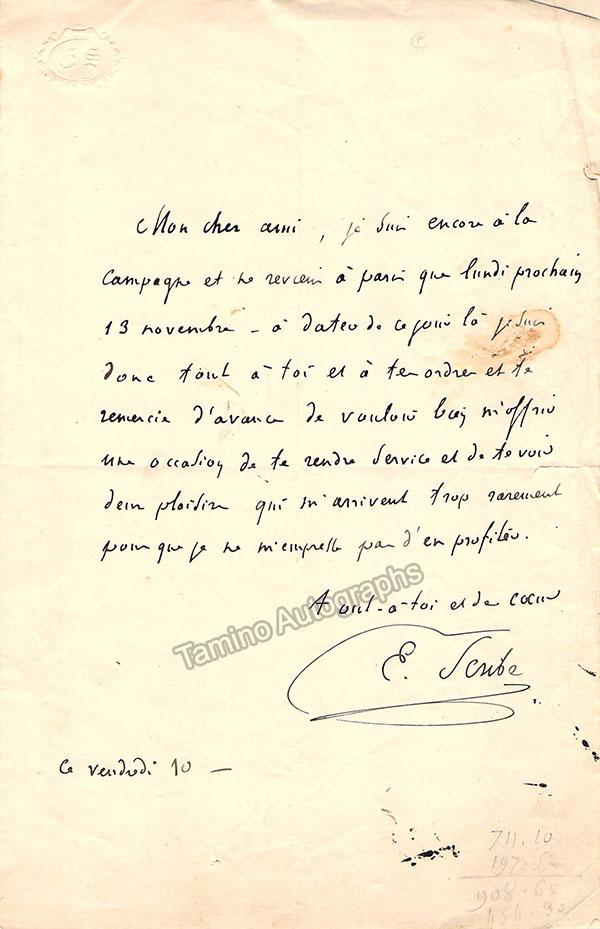 ES
Mon cher ami, je suis encore à la
campagne et ne reviens à paris que lundi prochain
13 novembre - à dater de ce jour là je suis
donc tout à toi et à tes ordres et te
remercie d'avance de vouloir bien m'offrir
une occasion de te rendre service et de te voir
deux plaisirs qui m'arrivent trop rarement
pour que je ne m'empresse pas d'en profiter.
tout-à-toi et de cœur
E. Scribe
Tamino Autographs
Ce vendredi 10 —
711.10
197.52
908.62
454.3